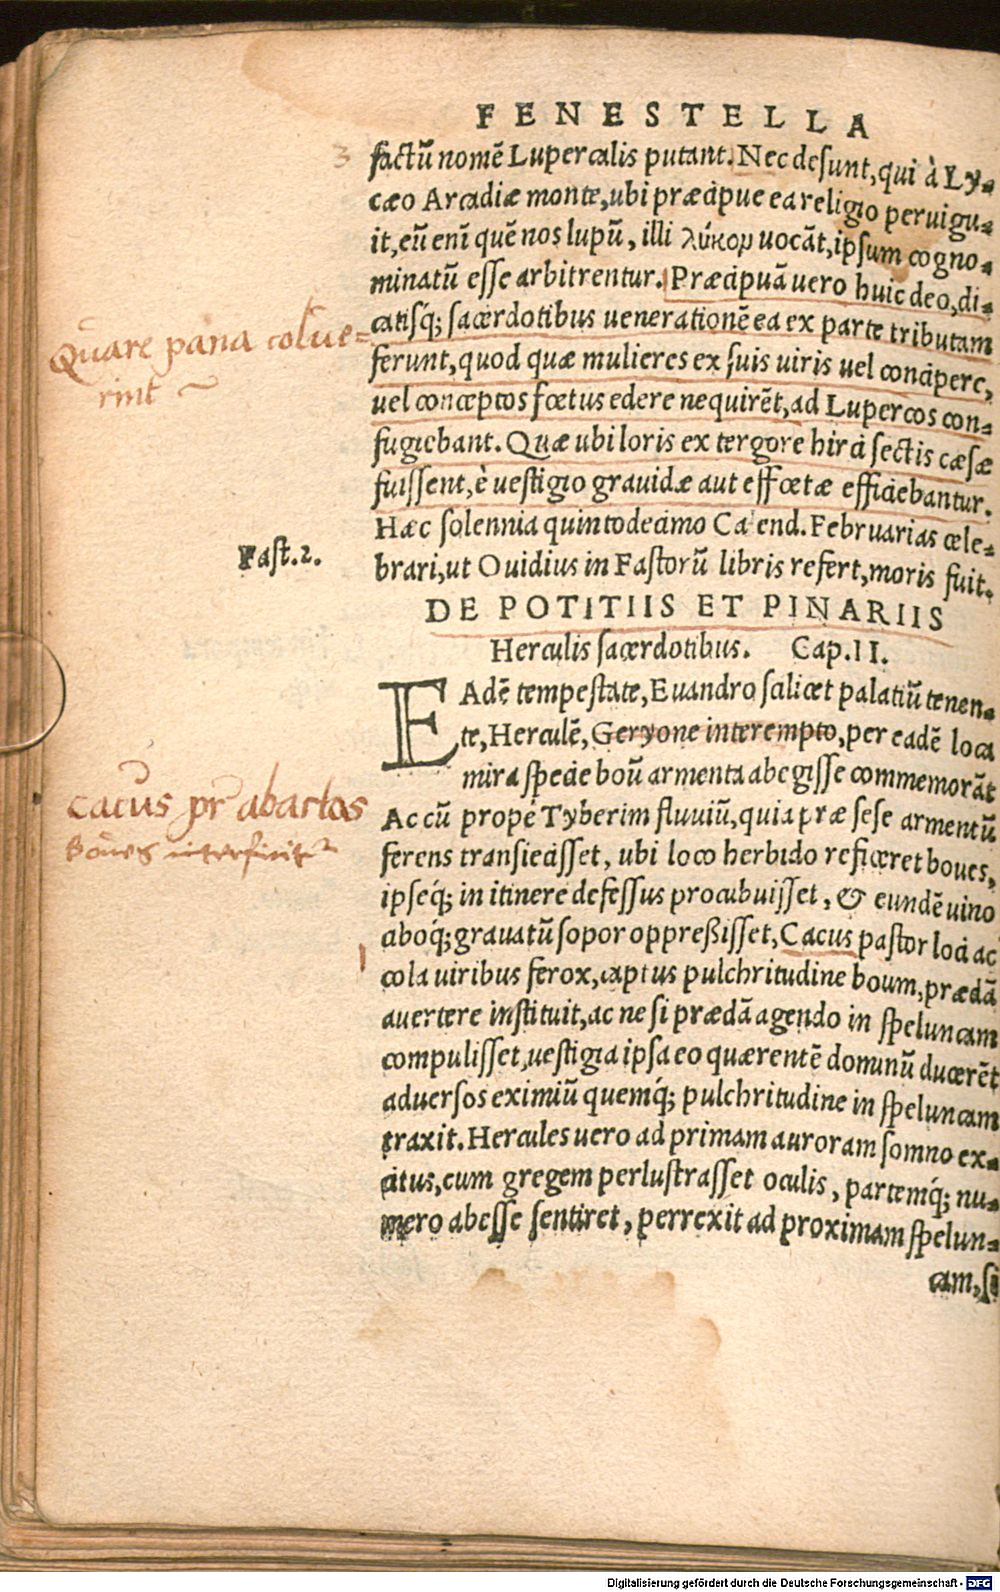 FENESTELLA
3
factū nomē Lupercalis putant. Nec desunt, qui à Ly-
cæo Arcadiæ monte, ubi præcipue ea religio peruigu-
it, eū enī quē nos lupū, illi λύκομ uocāt, ipsum cogno-
minatū esse arbitrentur. Præcipuā uero huic deo, di-
catisq́; sacerdotibus uenerationē ea ex parte tributam
Quare pana colue-
rint
ferunt, quod quæ mulieres ex suis uiris uel concipere,
uel conceptos fœtus edere nequirēt, ad Lupercos con-
fugiebant. Quæ ubi loris ex tergore hirci sectis cæsæ
fuissent, è uestigio grauidæ aut effœtæ efficiebantur.
Hæc solennia quintodecimo Ca end. Februarias cele-
Fast.2.
brari, ut Ouidius in Fastorū libris refert, moris fuit.
DE POTITIIS ET PINARIIS
Herculis sacerdotibus. Cap. II.
EAdē tempestate, Euandro scilicet palatiū tenen-
te, Herculē, Geryone interempto, per eadē loca
mira specie boū armenta abegisse commemorāt
Cacus pr̄ abactos
boues interficit
Ac cū prope Tyberim fluuiū, quia præ sese armentū
ferens transiecisset, ubi loco herbido reficeret boues,
ipseq́; in itinere defessus procubuisset, & eundē uino
aboq́; grauatū sopor oppreßisset, Cacus pastor loci ac
cola uiribus ferox, captus pulchritudine boum, prædā
auertere instituit, ac ne si prædā agendo in speluncam
compulisset, uestigia ipsa eo quærentē dominū ducerēt
aduersos eximiū quemq́; pulchritudine in speluncam
traxit. Hercules uero ad primam auroram somno ex-
citus, cum gregem perlustrasset oculis, partemq́; nu-
mero abesse sentiret, perrexit ad proximam spelun-
cam, si
Digitalisierung gefördert durch die Deutsche Forschungsgemeinschaft - DFG